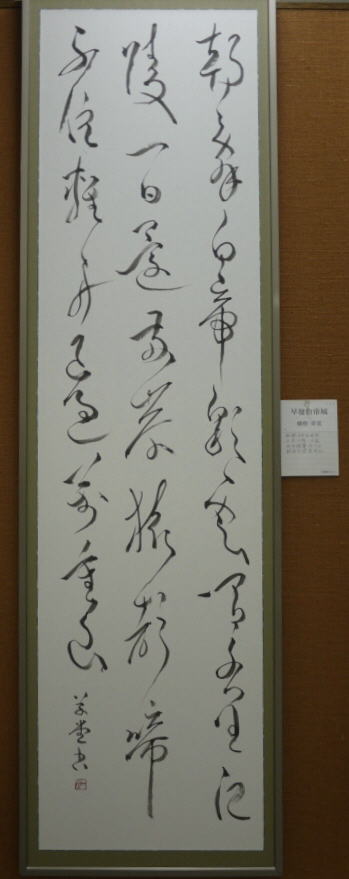 朝辭白帝彩雲間千里江
陵一日還兩岸猿聲啼
不住輕舟已過萬重山
早發白帝城